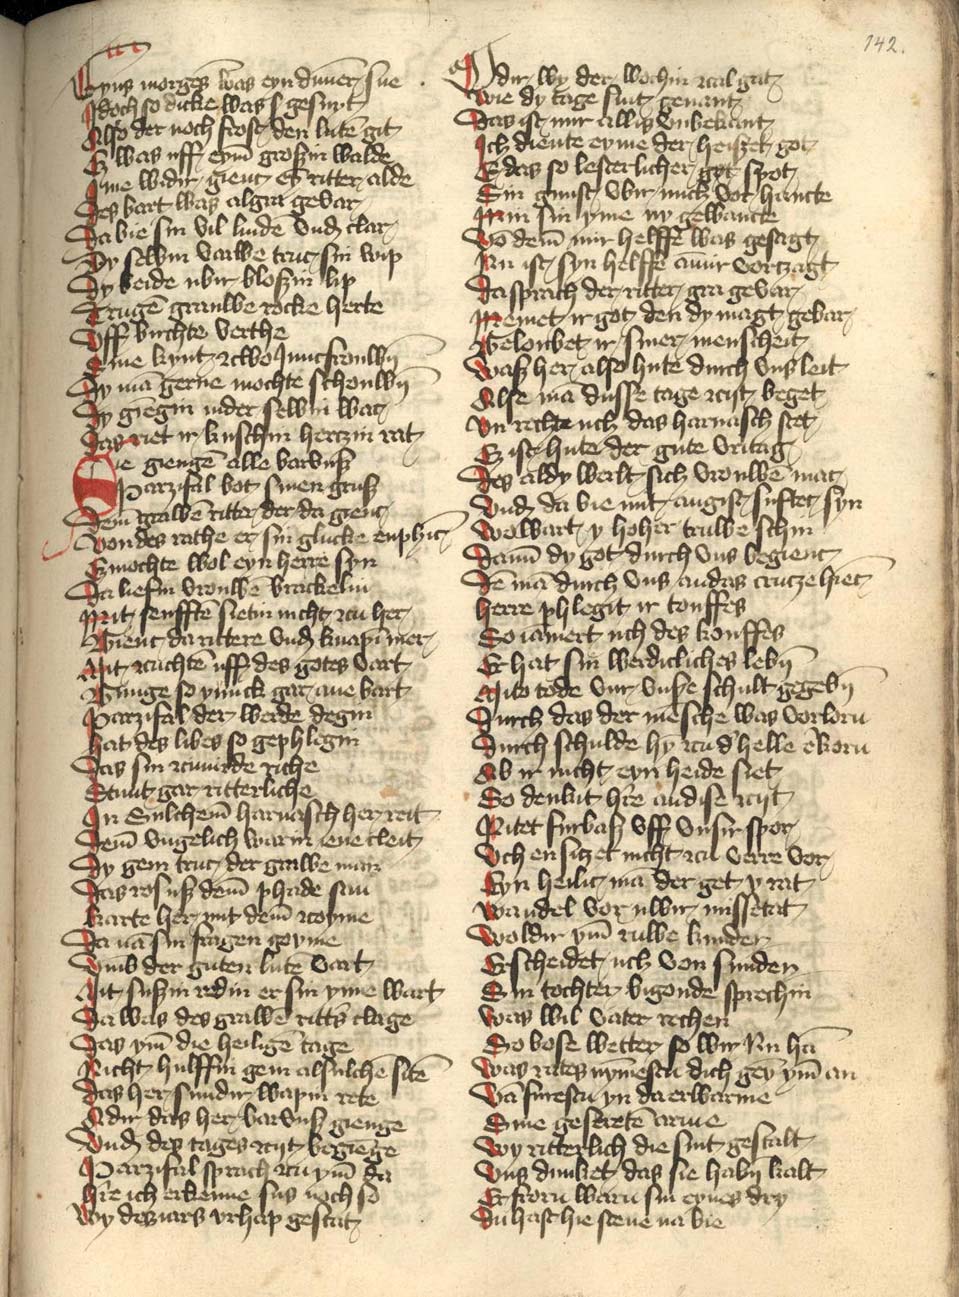 142.
Eyns morges was eyn dunner sne
Idoch so dicke was s gesnyt
Also der noch frost den lutē git
Ez was uff eynē grossin walde
Ime widir gienc ey ritter alde
Des bart was algra gevar
Da bie sin vil linde vnd clar
Dy selbin varwe truc sin wip
Dy beide ubir blossin lip
Trugē grauwe rocke herte
Vff birchte verthe
Sine kynt zcwo Juncfrouwī
Dy mā gerne mochte schouwī
Dy giegin in der selbin wat
Das riet ir kuschin hertzin rat
Sie giengē alle barvusz
Parzifal bot sinen grusz
Dem grawē ritter der da gienc
Von des rathe er sin glucke enphīc
Ez mochte wol eyn herre syn
Da liefin vrouwē brackelin
Mit senfftē sietin nicht zcu her
Gienc da rittere vnd knapī mer
Mit zcuchtē uff des gotes vart
Gnuge so yunck gar ane bart
Parzifal der werde degin
Hat des libes so gephlegin
Das sin zcimirde riche
Stunt gar ritterliche
In sulchem harnasch her reit
Dem vngelich warin iene cleit
Dy gein truc der grawe man
Das ros usz dem phade san
Karte her mit dem zcoyme
Da nā sin fragen goyme
Vmb der guten lutē vart
Mit suszin redin er sin yme wart
Da was des grawē ritt's clage
Das ym die heiligē tage
Nicht hulffin gein alsulchē sitē
Das her sundir wapin rete
Adir das her barvusz gienge
Vnd des tages zcijt begienge
Parzifal sprach zcu ym da
H're ich erkenne sus noch so
Wy des iars vrhap gestat
Adir wy der wochin zcal gat
Wie dy tage sint genant
Das ist mir allis vnbekant
Ich diente eyme der heiszet got
E das so lesterlicher got spot
Sin gunst vbir mich vor hancte
Min sin yme ny gewancte
Vō dem mir helffē was gesagt
Nu ist syn helffe an mir vortzagt
Da sprach der ritter gra gevar
Meinet ir got den dy magt gebar
Geloubet ir siner menscheit
Wasz her also hute durch vns leit
Alse mā dusse tage zcijt beget
Vn rechte uch das harnasch stet
Ez ist hute der gute vritag
Des aldy werlt sich vrouwē mac
Vnd da bie mit angist suftec syn
Wo wart y hoher truwe schin
Dann dy got durch vns begienc
Dē mā durch vns an das crutze hienc
Herre phlegit ir touffes
So iamert uch des kouffes
Er hat sin werdicliches lebī
Mito tode vur vnsze schult gegebī
Durch das der mēsche was vorlorn
Durch schulde hy zcu d' helle erkorn
Ab ir nicht eyn heide siet
So denkit h're an dise zcijt
Ritet furbasz uff vnsir spor
Vch ensitzet nicht zcu verre vor
Eyn heilic mā der get y rat
Wandel vor uwir missetat
Woldir ym ruwe kunden
Er scheidet uch von sunden
Sin tochter bigonde sprechin
Was wil vater rechen
So bose wetter so wir Nu hā
Was rates nymestu dich gey ym an
Vā furestu yn da erwarme
Sine geserētē arme
Wy ritterlich die sint gestalt
Vns dunket das sie habī kalt
Er frorn warn sin eynes dry
Du hast hie stene na bie